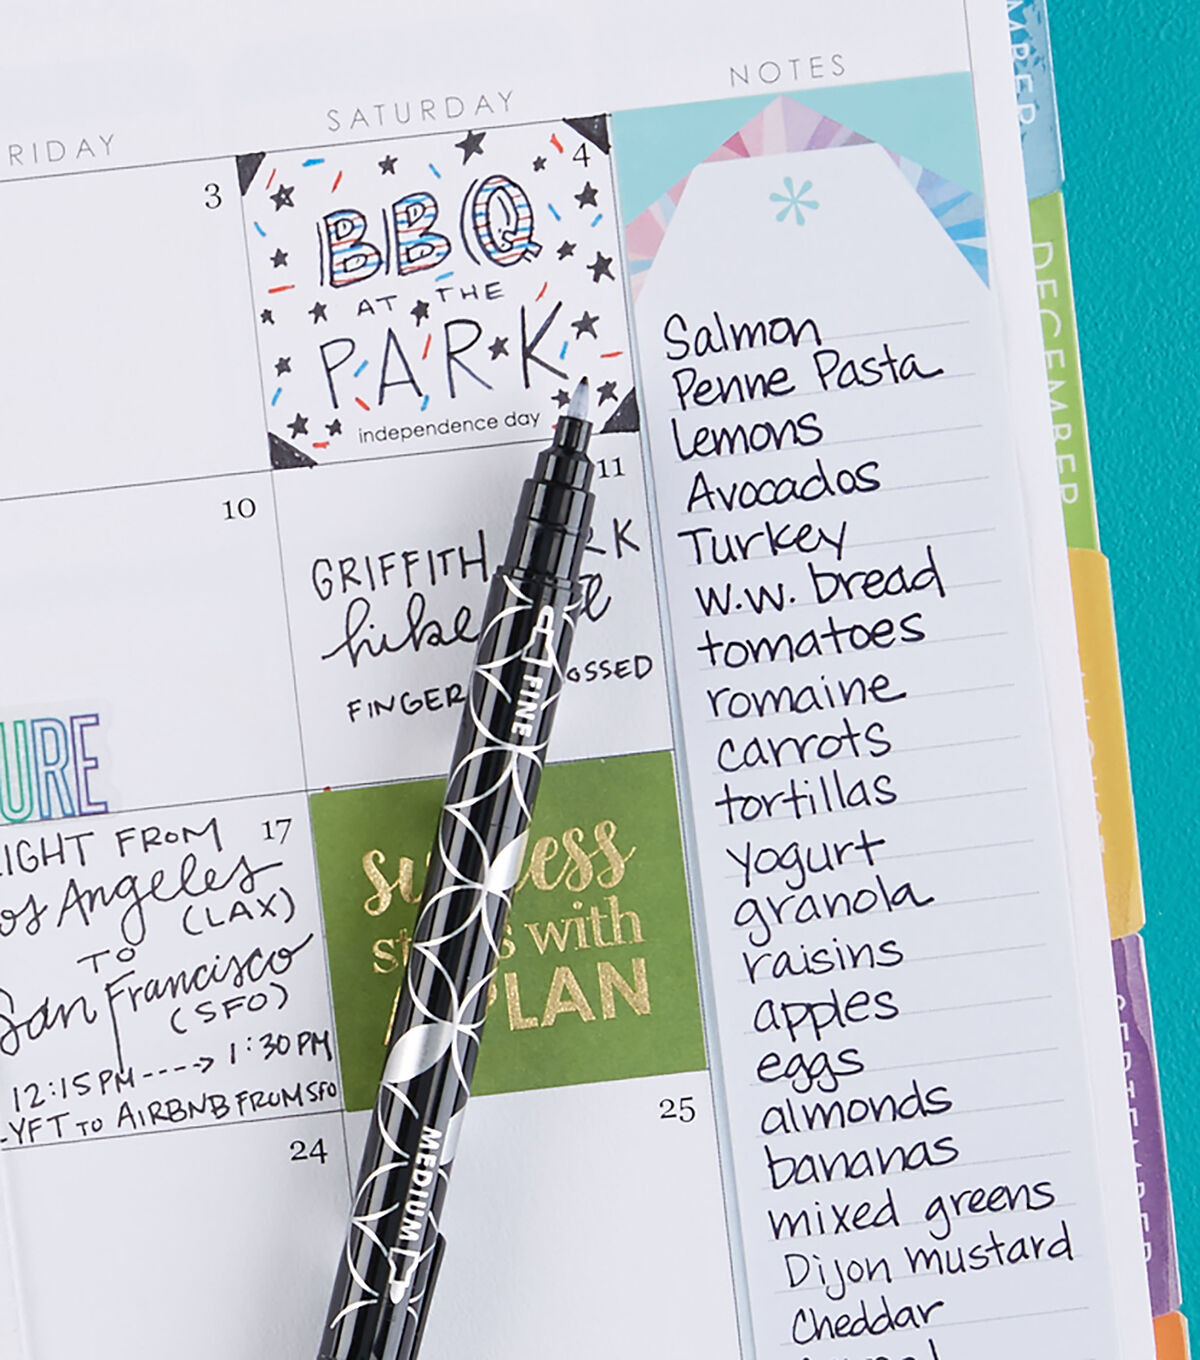 RIDAY
SATURDAY
NOTES
3
4
BBQ
AT THE
PARK
independence day
10
11
GRIFFITH
hike
FINGER
OSSED
URE
17
IGHT FROM
os Angeles
(LAX)
TO
San Francisco
(SFO)
12:15PM ----> 1:30PM
LYFT TO AIRBNB FROM SFO
with
PLAN
24
25
Salmon
Penne Pasta
Lemons
Avocados
Turkey
w.w. bread
tomatoes
romaine
carrots
tortillas
yogurt
granola
raisins
apples
eggs
almonds
bananas
mixed greens
Dijon mustard
Cheddar
FINE
MEDIUM
MBER
DECEMBER
SEPTEMBER